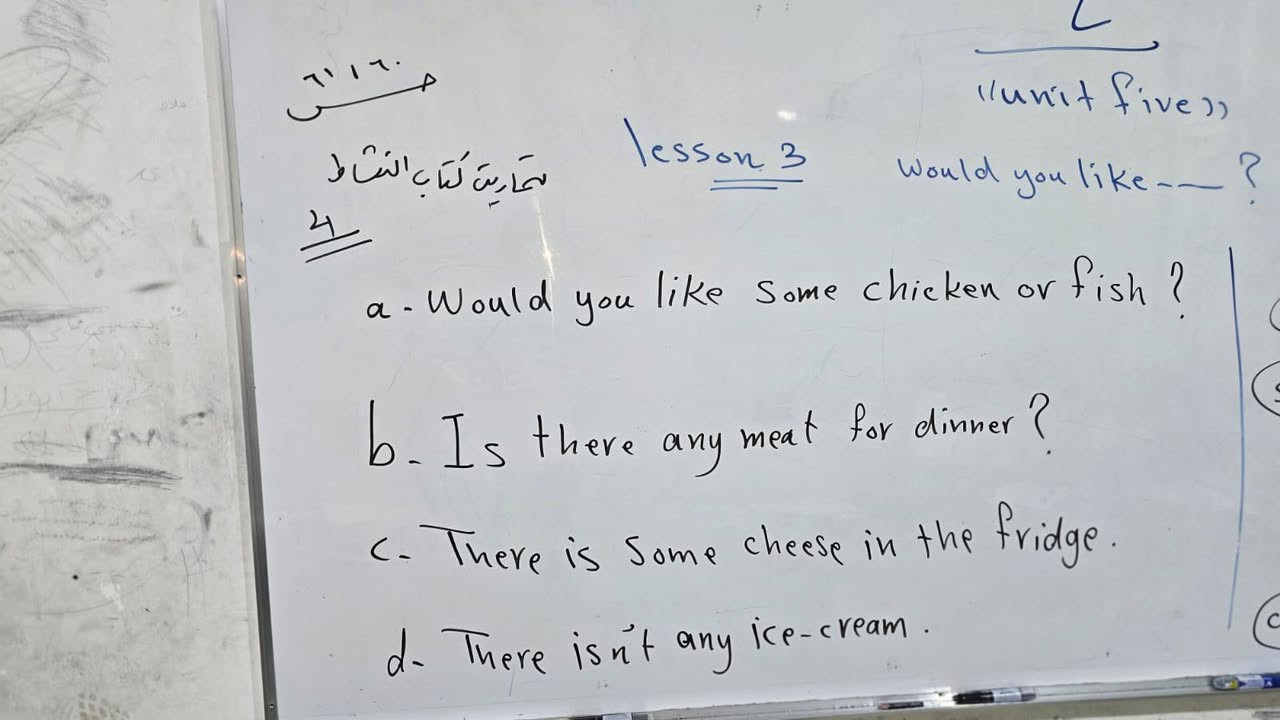 "unit five"
lesson 3 Would you like --- ?
ص ٦١ ، ٦٠
تمارين كتاب النشاط
4
a - Would you like some chicken or fish ?
b - Is there any meat for dinner ?
c - There is some cheese in the fridge .
d - There isn't any ice-cream .